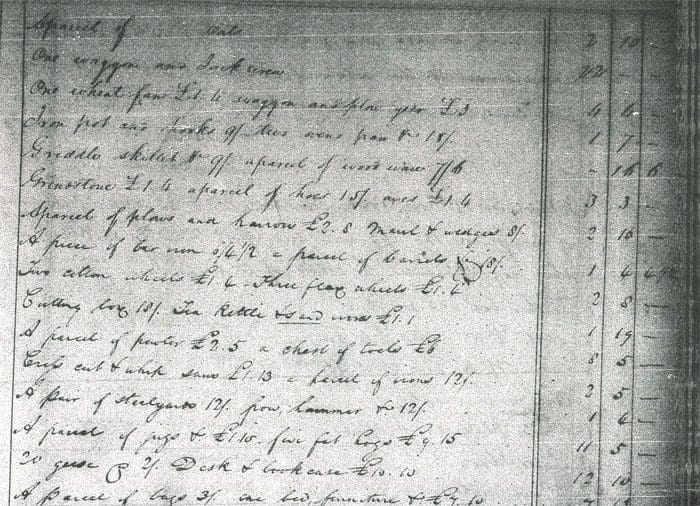 Aparcel of oats 2 10 —
One waggon and Jack screw 22 - -
One wheat fan £1.4 waggon and plow geer £3 4 4 —
Iron pot and hooks 9/ two ovens pan & 18/. 1 7 —
Griddle skillet & 9/ aparcel of wooden ware 7/6 - 16 6
Grindstone £1.4 aparcel of hoes 15/ axes £1.4 3 3 —
Aparcel of plows and harrow £2.8 Maul & wedges 8/. 2 16 —
A piece of bar iron 6/4½ a parcel of barrels 18/. 1 4 4½
Two cotton wheels £1.4 Three flax wheels £1.4 2 8 —
Cutting box 18/. Tea Kettle & sand irons £1.1 1 19 —
A parcel of pewter £2.5 a chest of tools £6 8 5 —
Cross cut & whip saws £1.13 a parcel of irons 12/. 2 5 —
A pair of steelyards 12/. frow, hammer & 12/. 1 4 —
A parcel of pigs & £1.10. five fat hogs £9.15 11 5 —
20 geese @ 2/. Desk & bookcase £10.10 12 10 —
A Parcel of bags 3/. one bed, furniture & £7.10